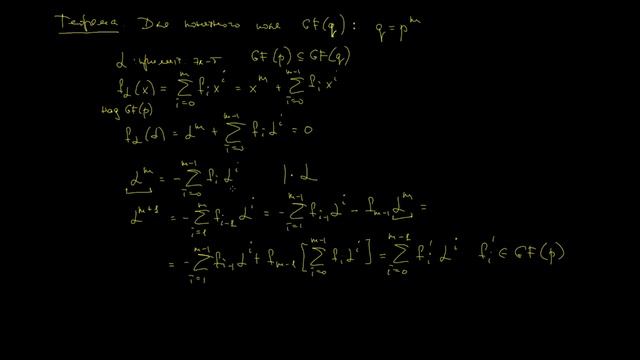 Теорема Для конечного поля GF(q): q = p^m
α: примит. эл-т GF(p) ⊆ GF(q)
f_α(x) = \sum_{i=0}^{m} f_i x^i = x^m + \sum_{i=0}^{m-1} f_i x^i
над GF(p)
f_α(α) = α^m + \sum_{i=0}^{m-1} f_i α^i = 0
α^m = -\sum_{i=0}^{m-1} f_i α^i | · α
α^{m+1} = -\sum_{i=1}^{m} f_{i-1} α^i = -\sum_{i=1}^{m-1} f_{i-1} α^i - f_{m-1} α^m =
= -\sum_{i=1}^{m-1} f_{i-1} α^i + f_{m-1} [\sum_{i=0}^{m-1} f_i α^i] = \sum_{i=0}^{m-1} f_i' α^i f_i' ∈ GF(p)